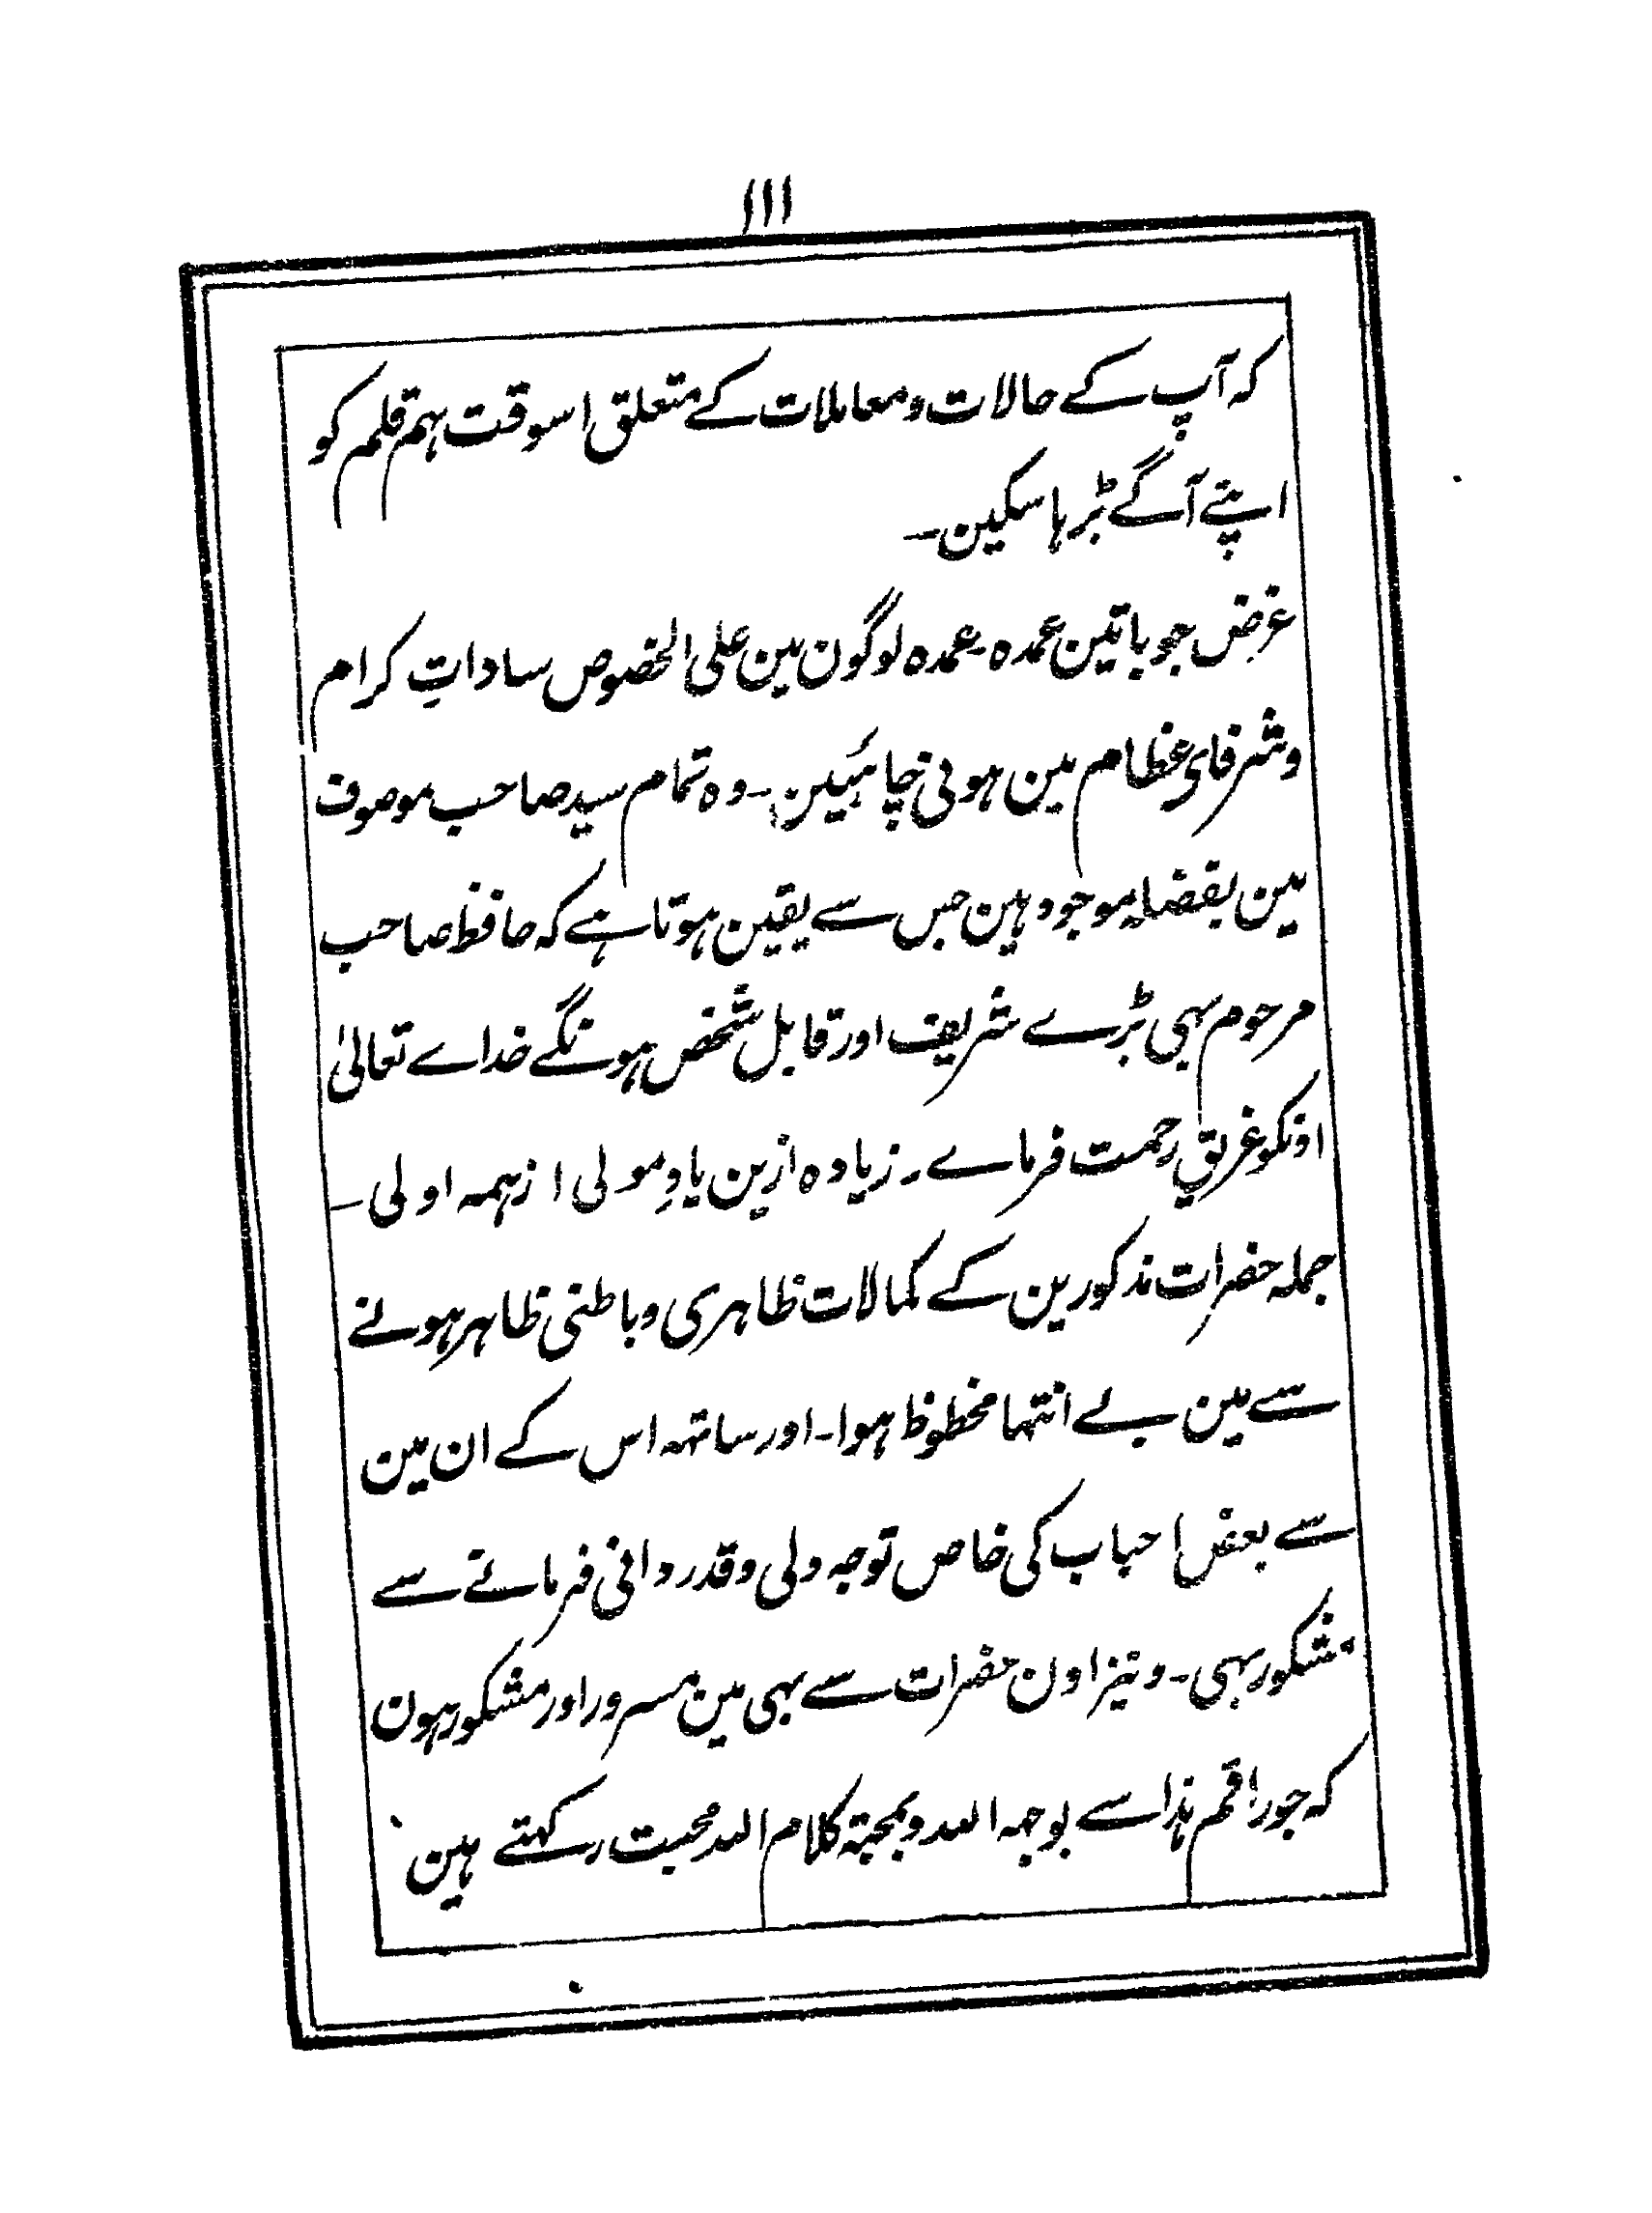 ۱۱۱
کہ آپ کے حالات و معاملات کے متعلق اسوقت ہم قلم کو
اپنے آگے بڑہا سکین۔
غرض جو باتین عمدہ۔ عمدہ لوگون مین علی الخصوص ساداتِ کرام
و شرفای عظام مین ہونی چاہئین۔ وہ تمام سید صاحب موصوف
مین بفضلہ موجود ہین جس سے یقین ہوتا ہے کہ حافظ صاحب
مرحوم بہی بڑے شریف اور قابل شخص ہونگے خداے تعالیٰ
اونکو غریق رحمت فرماے۔ زیادہ ازین یادِ مولی از ہمہ اولی۔
جملہ حضرات مذکورین کے کمالات ظاہری و باطنی ظاہر ہونے
سے مین بے انتہا محظوظ ہوا۔ اور ساتہہ اس کے ان مین
سے بعض احباب کی خاص توجہ دلی و قدردانی فرمانے سے
مشکور بہی۔ و نیز اون حضرات سے بہی مین مسرور اور مشکور ہون
کہ جو راقم ہذا سے لوجہ اللہ و بمحبۃ کلام اللہ محبت رکہتے ہین